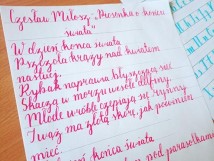 Czesław Miłosz „Piosenka o końcu
świata"
W dzień końca świata
Pszczoła krąży nad kwiatem
nasturcji,
Rybak naprawia błyszczącą sieć.
Skaczą w morzu wesołe delfiny,
Młode wróble czepiają się rynny
I wąż ma złotą skórę, jak powinien
mieć.
końca świata
pod parasolkami